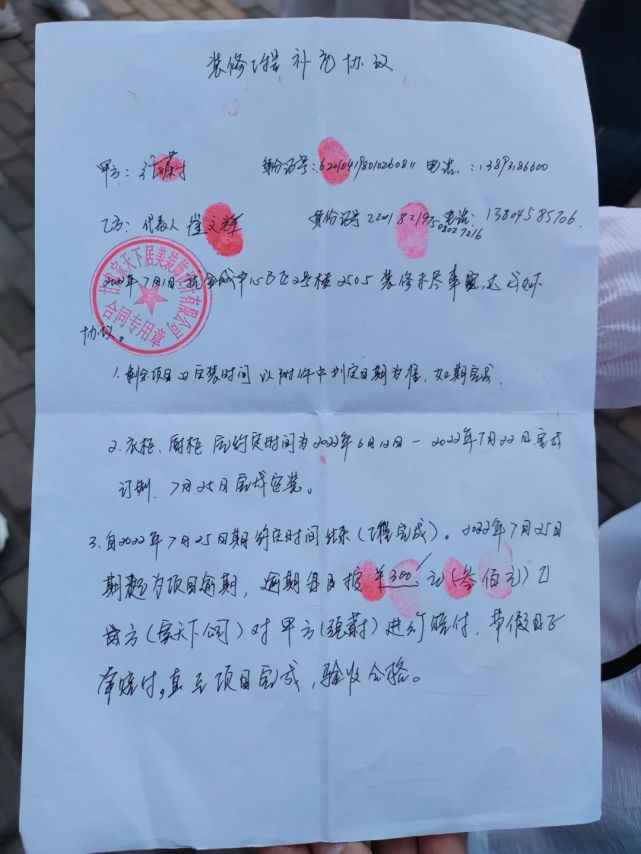 装修增补充协议
甲方： 身份证号：620104198010260811 电话：13893186600
乙方：代表人 崔文辉 身份证号 220182197508027216 电话：13804585706
家天下居美装饰 有限公司
合同专用章
2022年7月1日就 城中心B区2号楼2505装修未尽事宜，达成如下
协议。
1. 剩余项目及安装时间以附件中判定日期为准，如期完成。
2. 衣柜、厨柜 约定时间为2022年6月12日－2022年7月22日完成
订制，7月25日完成安装。
3. 自2022年7月25日期约定时间结束（工程完成）。2022年7月25日
期 为项目逾期，逾期每日按 ¥300 元（叁佰元）
方（家天下公司）对甲方（张蔚）进行赔付，节假日
赔付，直至项目完成，验收合格。